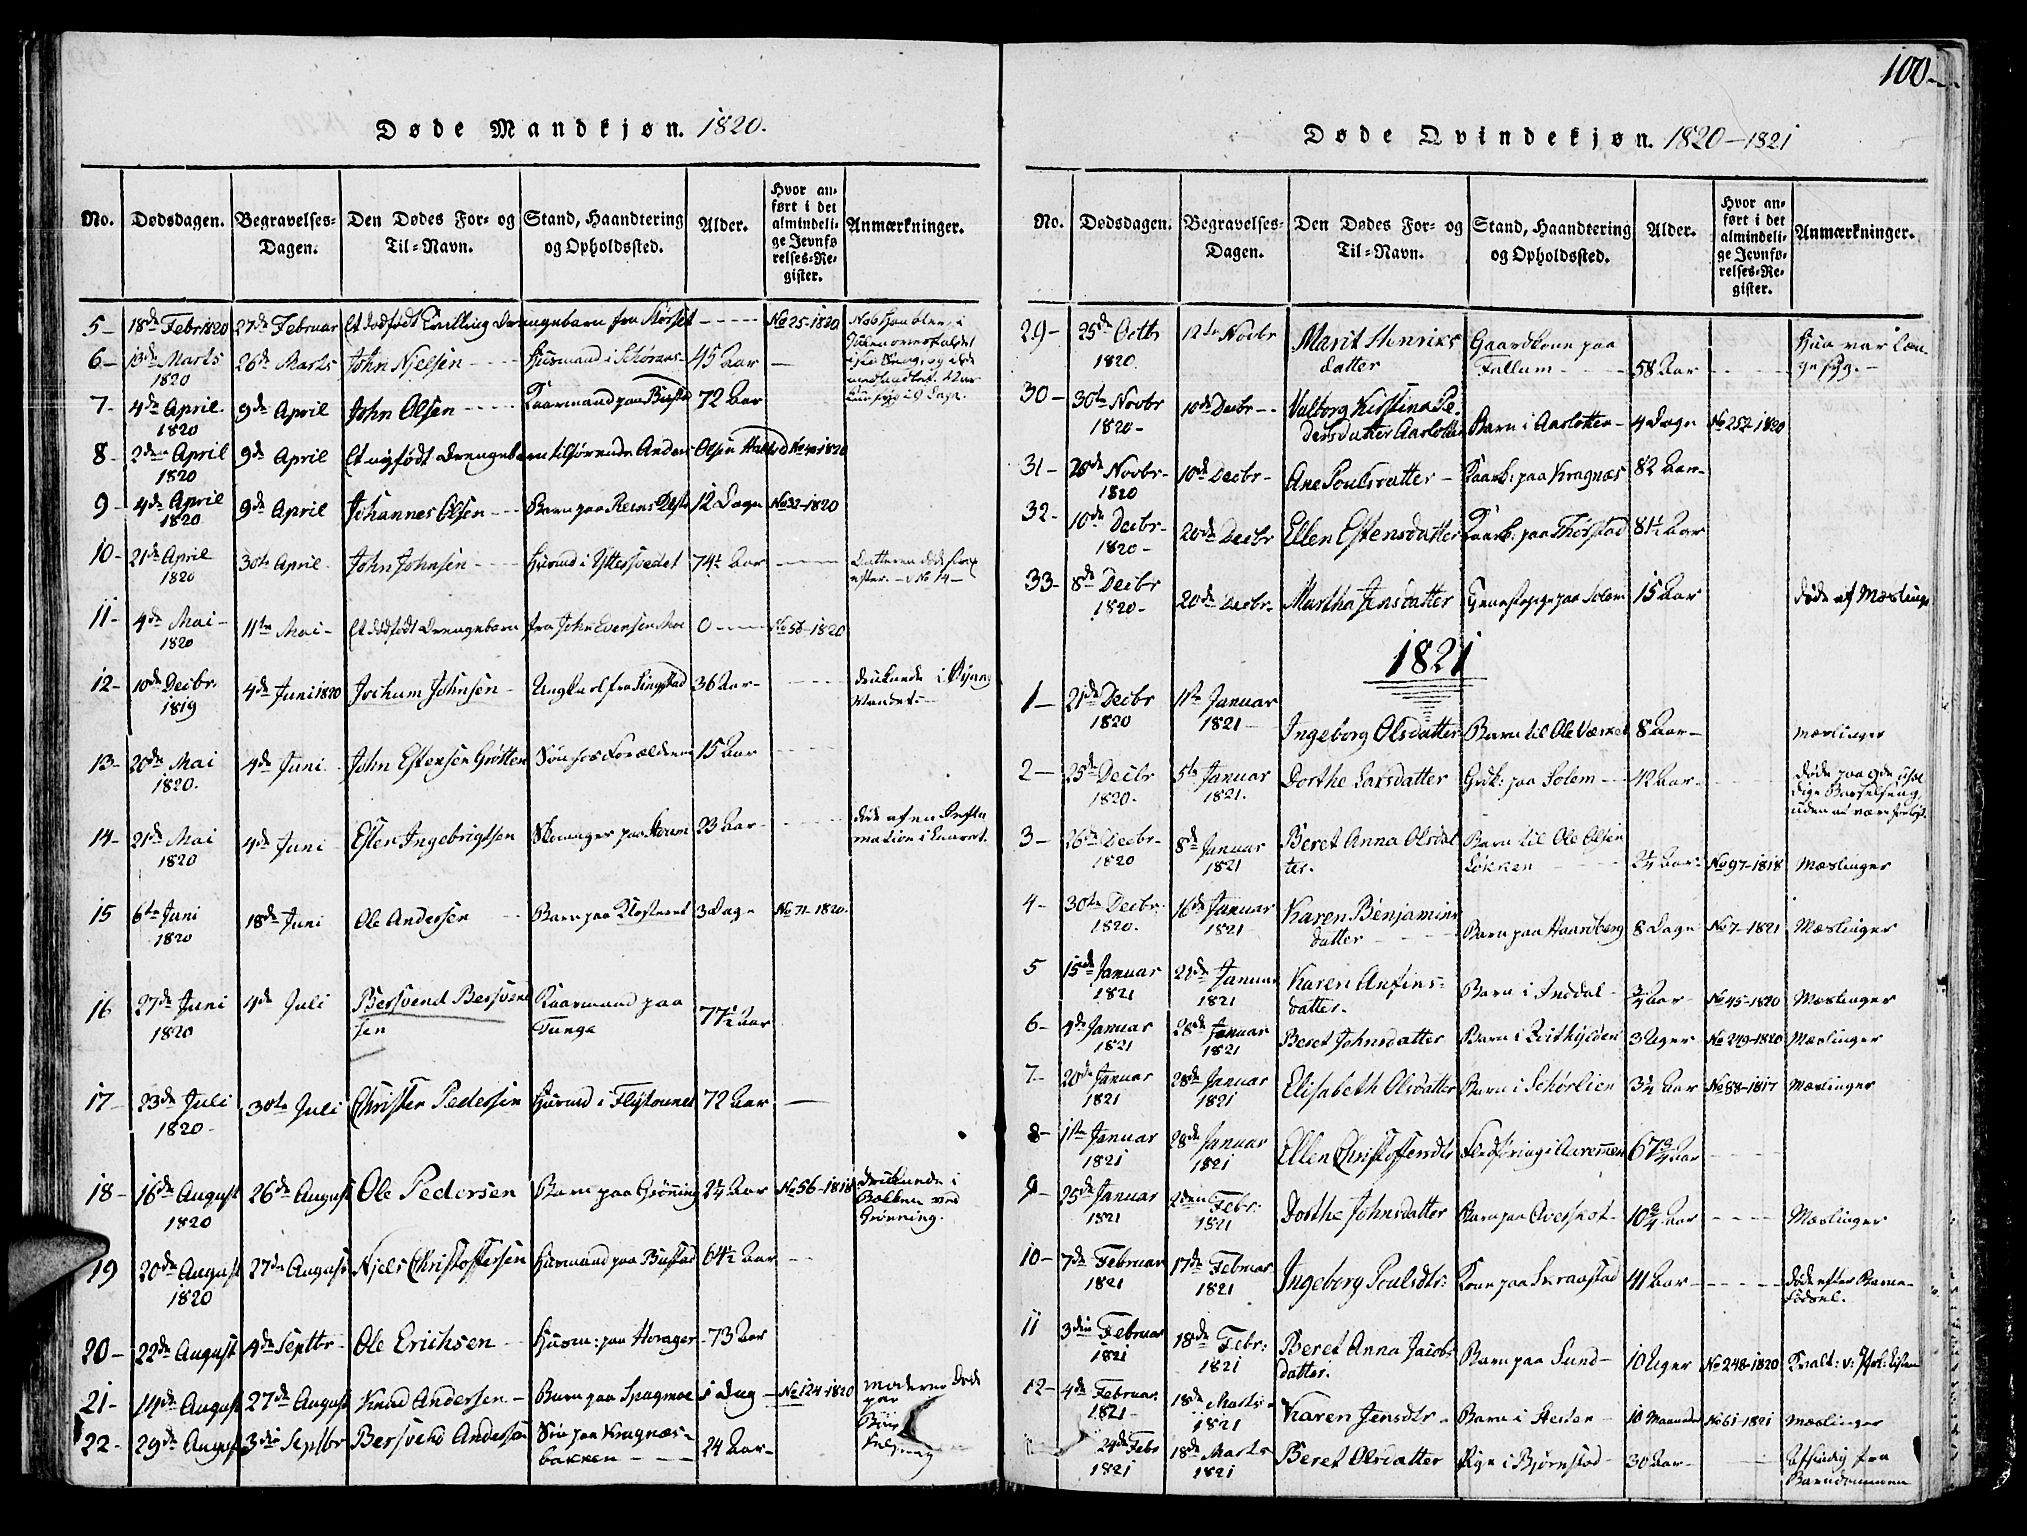 100
Døde Mandkjøn. 1820.
No. Dødsdagen. Begravelses-Dagen. Den Dødes For- og Til-Navn. Stand, Haandtering og Opholdssted. Alder. Hvor anført i det almindelige Jevnførelses-Register. Anmærkninger.
5- 18de Febr 1820 27de Februar Et dødfødt Tvilling Drengebarn fra Størset - No 25-1820
6- 13de Marts 1820 26de Marts John Nielsen Huusmand i 45 Aar
7- 4de April 1820 9de April John Olsen Kaarmand paa Bustad 72 Aar
8- 2den April 1820 9de April Et nyfødt Drengebarn tilhørende Anders Olsen No 40 1820
9- 4de April 1820 9de April Johannes Olsen Barn paa 12 Dage No 32-1820
10- 21de April 1820 30te April John Johnsen Husmd i 74½ Aar
11- 4de Mai 1820 11te Mai Et dødfødt Drengebarn fra John Evensen Moe 0 No 56-1820
12- 10de Decbr. 1819 4de Juni 1820 Jochum Johnsen Ungkarl fra 36 Aar druknede i
13- 20de Mai 1820. 4de Juni John Estensen Grøtten Søn hos Forældrene 15 Aar
14- 21de Mai 1820 4de Juni Esten Ingebrigtsen 23 Aar døde af en
15 6te Juni 1820 18de Juni Ole Andersen Barn paa Klosteret 3 Dage No 71-1820.
16 27de Juni 1820 4de Juli Bersvend Bersvendsen Kaarmand paa Tunga 77½ Aar
17- 23de Juli 1820 30te Juli Christen Pedersen Husmd i 72 Aar
18- 16de August 1820 26de August Ole Pedersen Barn paa Grønning 2¼ Aar No 56-1818 druknede i Bækken ved Grønning.
19 20de August 1820 27de August Niels Christoffersen Husmand paa Bustad 64½ Aar
20- 22de August 4de Septbr Ole Erichsen Husm: paa Horager 73 Aar
21- 14de August 27de August Knud Andersen Barn paa Spagmoe 1 Dag No 124-1820
22- 29de August 3die Septbr Bersvend Andersen Søn paa Kragnæsbakken 24 Aar
Døde Qvindekjøn. 1820-1821
No. Dødsdagen. Begravelses-Dagen. Den Dødes For- og Til-Navn. Stand, Haandtering og Opholdssted. Alder. Hvor anført i det almindelige Jevnførelses-Register. Anmærkninger.
29- 25de Octbr 1820. 12te Novbr Marit Henriksdatter Gaardkone paa Follum 58 Aar Hun var længe syg.
30- 30te Novbr 1820 10de Decbr Valborg Kirstina Pedersdatter Aarlotten Barn i Aarlotten 4 Dage No 252-1820
31- 28de Novbr 1820 10de Decbr Ane Poulsdatter Kaark: paa Kragnæs 82 Aar
32- 10de Decbr 1820 20de Decbr Ellen Estensdatter Kaark: paa Thorstad 81½ Aar
33- 8de Decbr 1820 20de Decbr. Martha Jensdatter paa Solem 15 Aar døde af Mæslinger
1821
1- 21de Decbr 1820 11te Januar 1821 Ingeborg Olsdatter Barn til Ole 8 Aar Mæslinger
2- 25de Decbr 1820. 5te Januar 1821. Dorthe Larsdatter Gdk: paa Solem 42 Aar
3- 26de Decbr 1820 8de Januar 1821 Beret Anna Olsdatter. Barn til Ole Olsen Løkken 2¼ Aar No 97-1818 Mæslinger
4- 30te Decbr. 1820. 16de Januar 1821 Karen Benjaminsdatter Barn paa Haardberg 8 Dage No 7-1821 Mæslinger
5 15de Januar 1821 28de Januar 1821 Karen Anfinsdatter. Barn i Inddal ¾ Aar No 45-1820 Mæslinger
6- 4de Januar 1821 28de Januar 1821 Beret Johnsdatter Barn i 3 Uger No 249-1820 Mæslinger
7- 20de Januar 1821 28de Januar 1821 Elisabeth Olsdatter Barn i Schørlien 3¼ Aar No 88-1817 Mæslinger
8- 1ste Januar 1821 28de Januar 1821 Ellen Christoffersdtr 67¾ Aar
9- 25de Januar 1821 2den Febr: 1821 Dorthe Johnsdatter Barn paa 10¾ Aar Mæslinger
10- 7de Februar 1821 17de Februar 1821 Ingeborg Poulsdtr: Kone paa Skraastad 41 Aar døde efter Barnefødsel.
11 3die Februar 1821 18de Febr: 1821 Beret Anna Jacobsdatter. Barn paa Sund 10 Uger No 248-1820
12- 4de Februar 1821 18de Marts 1821 Karen Jensdtr Barn i 10 Maaneder No 61-1821 Mæslinger
24de Febr 1821 18de Marts 1821 Beret Olsdatter Pige i Bjørnstad 30 Aar Afsindig fra Barndommen